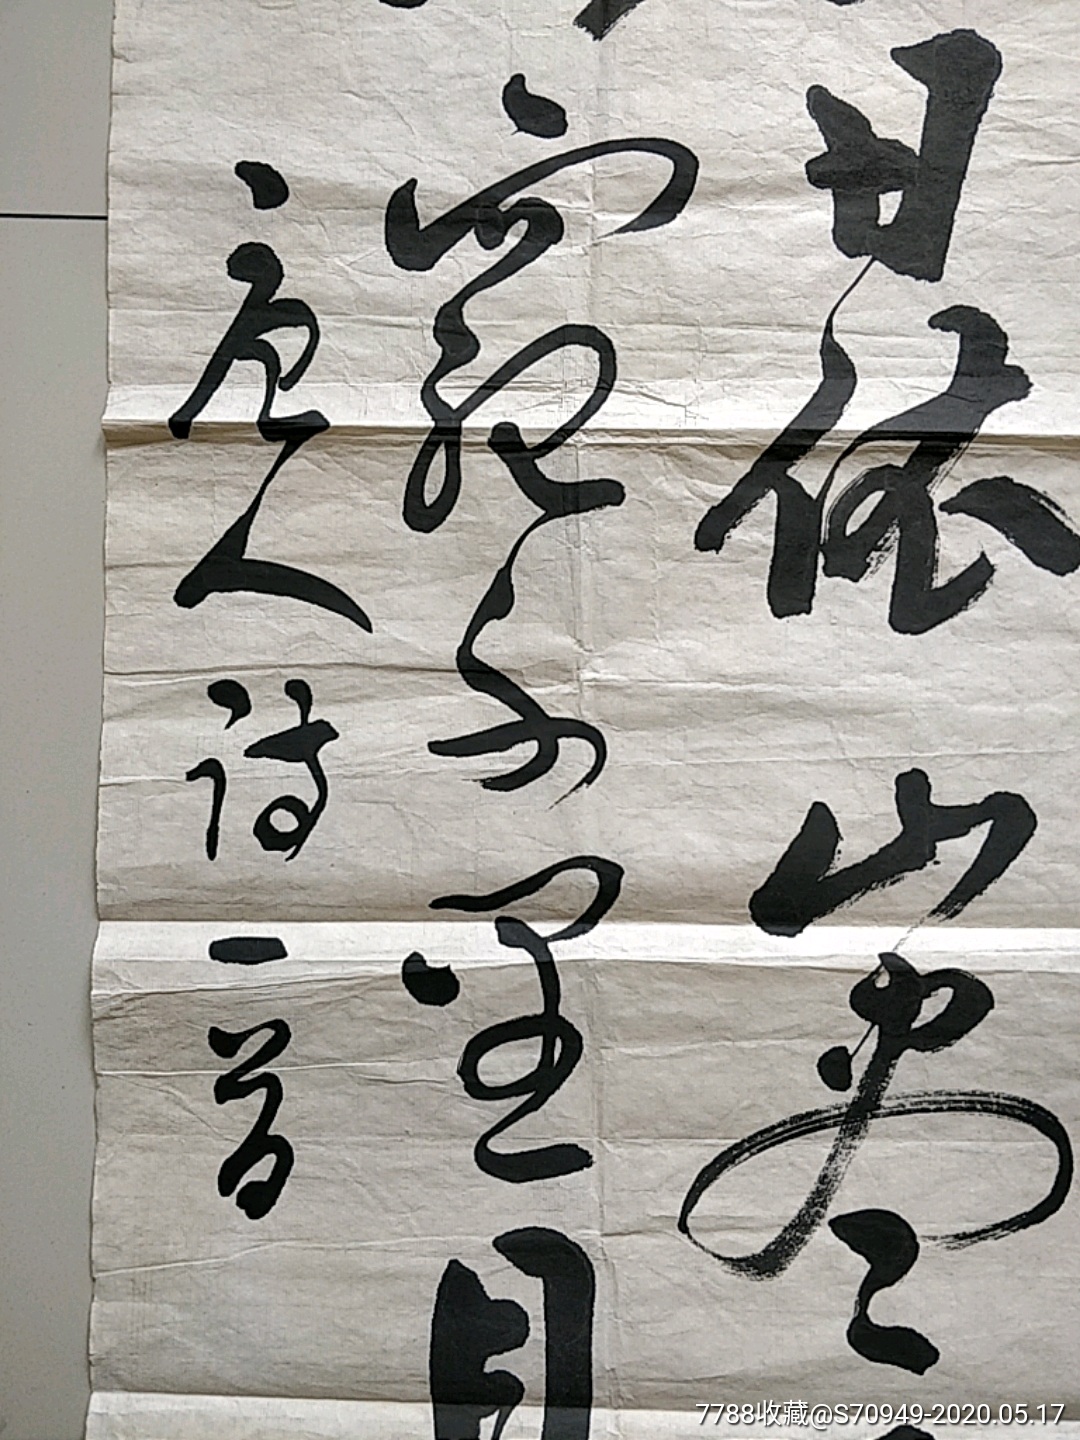 日依山尽
窮千里目
唐人诗一首
7788收藏@S70949-2020.05.17